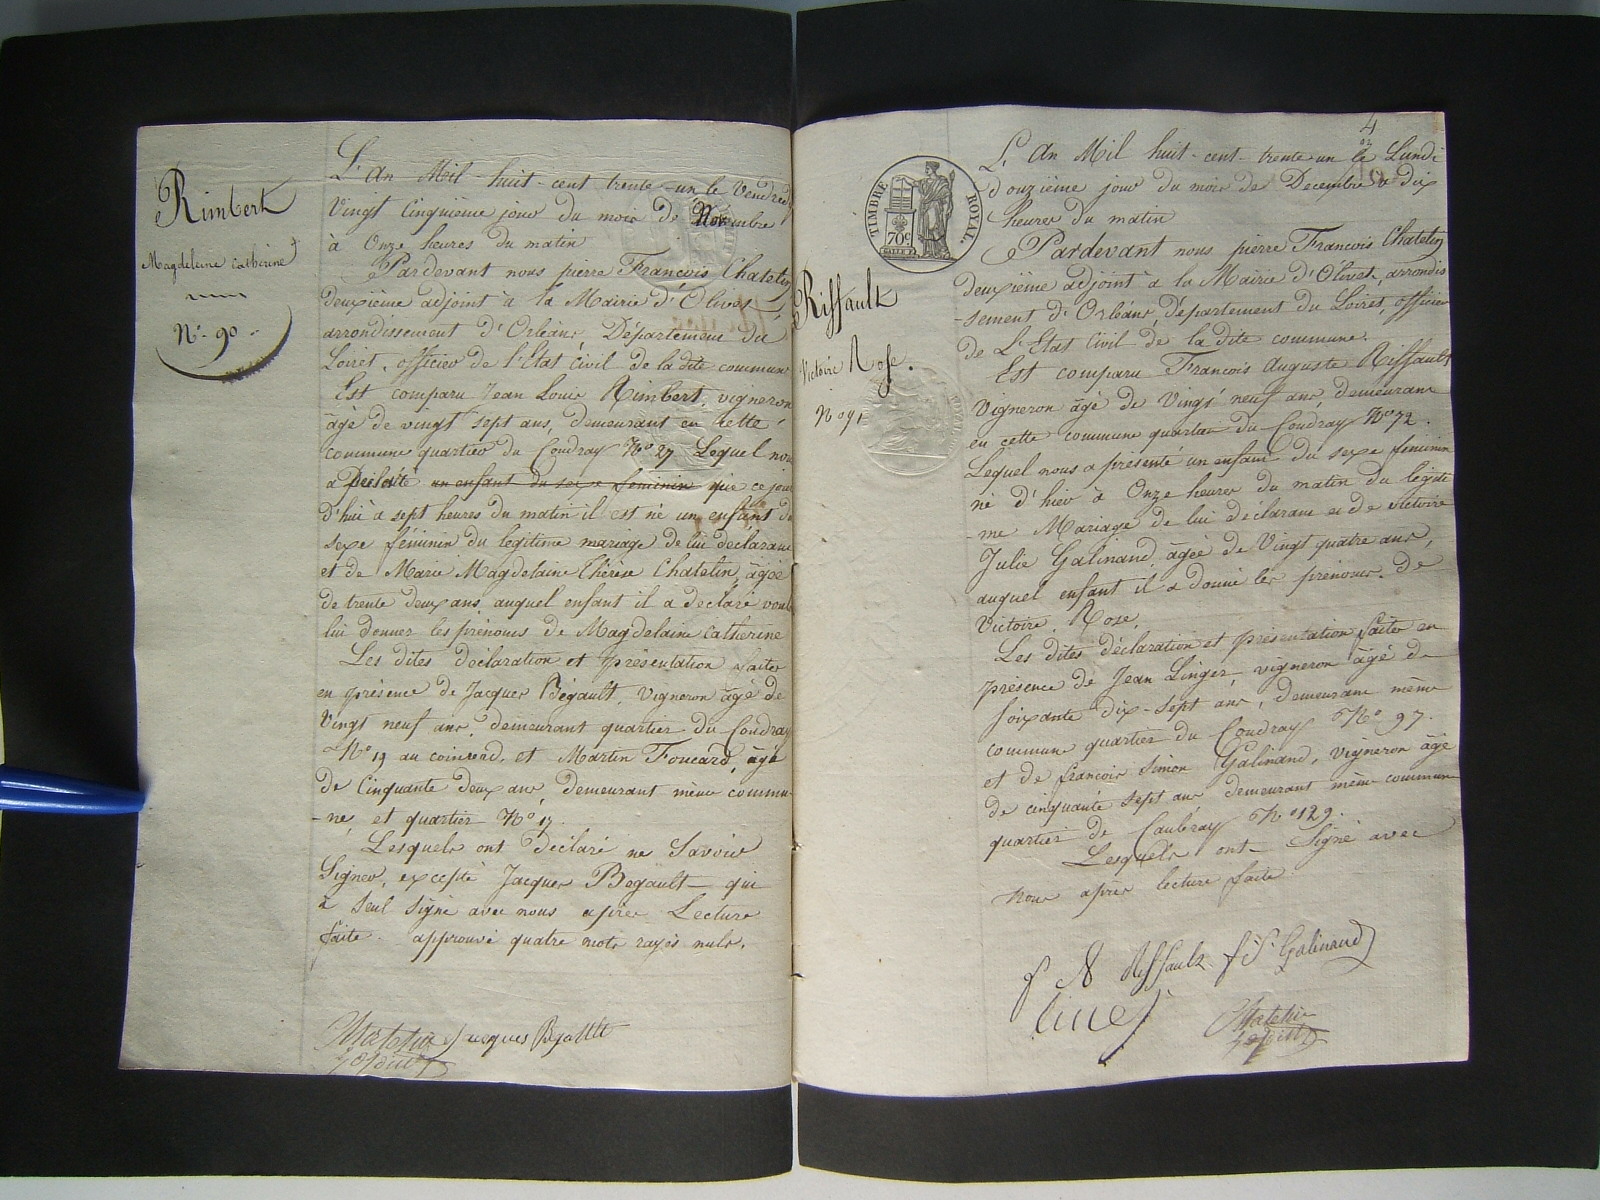 Rimbert
Magdeleine Catherine
N° 90
L'an Mil huit-cent trente-un le Vendredi
Vingt Cinquième jour du mois de Novembre
à Onze heures du matin
Pardevant nous pierre François Chatelin
deuxième adjoint à la Mairie d'Olivet
arrondissement d'Orléans, Département du
Loiret, officier de l'Etat Civil de la dite commune
Est comparu Jean Louis Rimbert, vigneron
âgé de vingt sept ans, demeurant en cette
commune quartier du Coudray N° 27 Lequel nous
a Déclaré un enfant du sexe feminin que ce jour
d'hui à sept heures du matin il est né un enfant du
sexe féminin du légitime mariage de lui déclarant
et de Marie Magdelaine Thérèse Chatelin, âgée
de trente deux ans, auquel enfant il a déclaré vouloir
lui donner les prénoms de Magdelaine Catherine
Les dites déclaration et présentation faites
en présence de Jacques Bégault, Vigneron âgé de
Vingt neuf ans, demeurant quartier du Coudray
N° 19 au coinrond, et Martin Foucard, âgé
de Cinquante deux ans, demeurant même commu-
-ne, et quartier N° 17.
Lesquels ont Déclaré ne Savoir
Signer, excepté Jacques Begault qui
a seul signé avec nous après Lecture
faite. approuvé quatre mots rayés nuls.
Chatelin Jacques Begault
adjoint
4
TIMBRE ROYAL.
70c
Riffault
Victoire Rose.
N° 91
L'An Mil huit-cent-trente un le Lundi
douzième jour du mois de Decembre à dix
heures du matin
Pardevant nous pierre François Chatelin
deuxième adjoint à la Mairie d'Olivet, arrondis
-sement d'Orléans, Département du Loiret, officier
de L'Etat Civil de la dite commune.
Est comparu François Auguste Riffault
Vigneron âgé de Vingt neuf ans demeurant
en cette commune quartier du Coudray N° 72.
Lequel nous a présenté un enfant du sexe féminin
né d'hier à Onze heures du matin du légiti
me Mariage de lui déclarant et de Victoire
Julie Galinand, âgée de Vingt quatre ans,
auquel enfant il a donné les prénoms de
Victoire Rose.
Les dites déclaration et présentation faites en
présence de Jean Linger, vigneron âgé de
soixante dix-sept ans, demeurant même
commune quartier du Coudray N° 97.
et de françois Simon Galinand, vigneron âgé
de cinquante sept ans demeurant même commune
quartier de Caubray N° 129.
Lesquels ont Signé avec
Nous après lecture faite
Riffault f S Galinand
Chatelin
adjoint